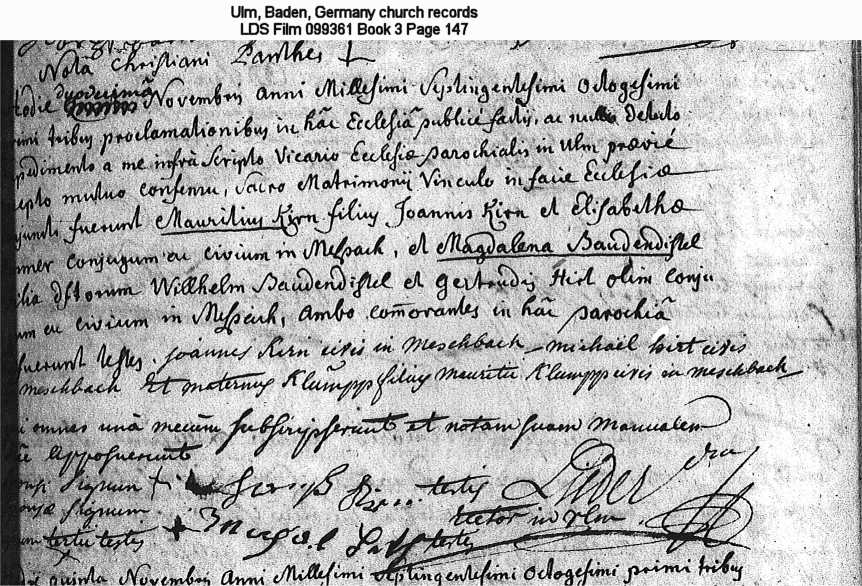 Ulm, Baden, Germany church records
LDS Film 099361 Book 3 Page 147
Nota Christiani Panther
hodie duodecimâ Novembris Anni Millesimi Septingentesimi Octogesimi
primi tribus proclamationibus in hâc Ecclesiâ publicè factis, ac nullo detecto
pedimento a me infrà Scripto Vicario Ecclesiæ parochialis in Ulm prævié
mutuo consensu, Sacro Matrimonij Vinculo in facie Ecclesiæ
fuerunt Mauritius Kirn filius Joannis Kirn et Elisabethæ
conjugum et civium in Mespach, et Magdalena Baudendistel
filia Willhelm Baudendistel et Gertrudis Hirt olim conju
et civium in Mespach, Ambo comorantes in hâc parochiâ
fuerunt testes. Joannes Kern civis in Meschbach - michaël hirt civis
meschbach Et maternus Klumpp filius mauritii Klumpp civis in meschbach
omnes unà mecum subscripserunt et notam suam manualem
apposuerunt
signum +
signum
tertii testis + testis
Lider
rector in Ulm
testis
quinta Novembris Anni Millesimi Septingentesimi Octogesimi primi tribus